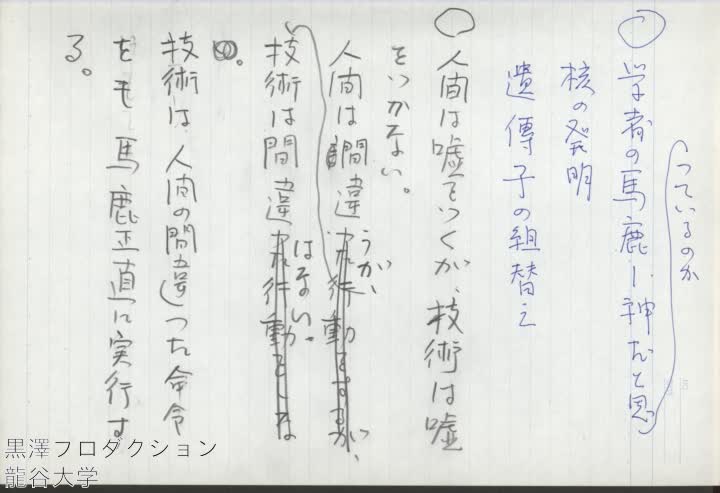 ○学者の馬鹿、神だと思
っているのか
核の発明
遺傳子の組替え
○人間は嘘をつくが、技術は嘘
をつかない。
人間は間違うが、
技術は間違はない。
技術は、人間の間違った命令
をも馬鹿正直に実行す
る。
黒澤プロダクション
龍谷大学